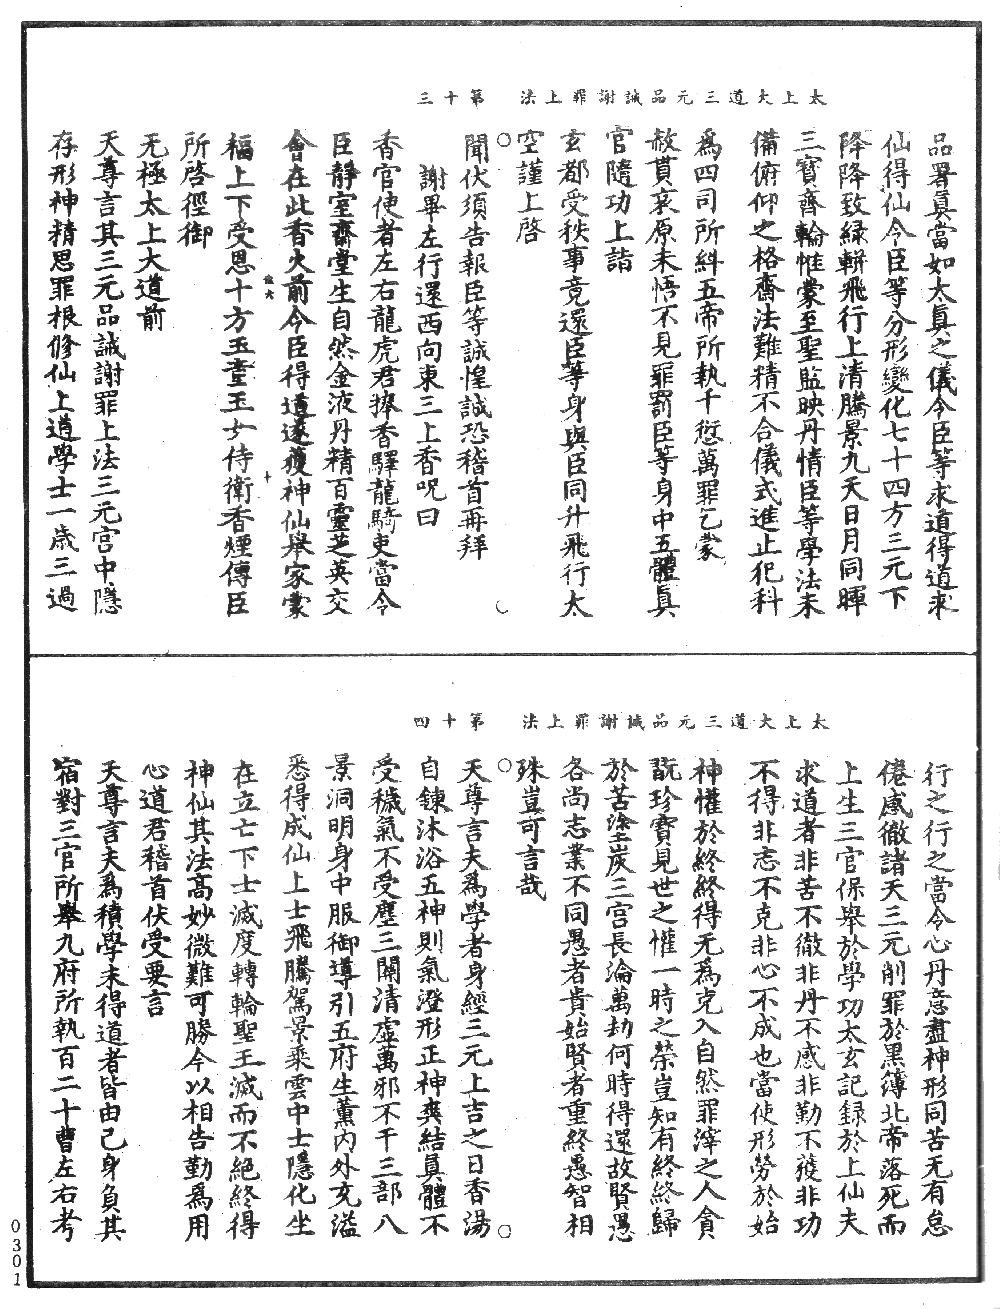 太上大道三元品誡謝罪上法　第十三
品署真當如太真之儀今臣等求道得道求
仙得仙今臣等分形變化七十四方三元下
降降致緑軿飛行上清騰景九天日月同暉
三寶齊輪惟蒙至聖監映丹情臣等學法未
備俯仰之格齋法難精不合儀式進止犯科
爲四司所糾五帝所執千愆萬罪乞蒙
赦貰哀原未悟不見罪罰臣等身中五體真
官隨功上詣
玄都受秩事竟還臣等身與臣同升飛行太
空謹上啓
聞伏須告報臣等誠惶誠恐稽首再拜
謝畢左行還西向東三上香呪曰
香官使者左右龍虎君捧香驛龍騎吏當令
臣靜室齋堂生自然金液丹精百靈芝英交
會在此香火前今臣得道遂獲神仙舉家蒙
福上下受恩十方玉童玉女侍衛香煙傳臣
所啓徑御
无極太上大道前
天尊言其三元品誡謝罪上法三元宫中隱
存形神精思罪根修仙上道學士一歲三過
太上大道三元品誡謝罪上法　第十四
行之行之當令心丹意盡神形同苦无有怠
倦感徹諸天三元削罪於黑簿北帝落死而
上生三官保舉於學功太玄記録於上仙夫
求道者非苦不徹非丹不感非勤不獲非功
不得非志不克非心不成也當使形勞於始
神懽於終終得无爲克入自然罪滓之人貪
翫珍寶見世之懽一時之榮豈知有終終歸
於苦塗炭三官長淪萬劫何時得還故賢愚
各尚志業不同愚者貴始賢者重終愚智相
殊豈可言哉
天尊言夫爲學者身經三元上吉之日香湯
自鍊沐浴五神則氣澄形正神爽結真體不
受穢氣不受塵三關清虛萬邪不干三部八
景洞明身中服御導引五府生薰内外充溢
悉得成仙上士飛騰駕景乘雲中士隱化坐
在立亡下士滅度轉輪聖王滅而不絶終得
神仙其法高妙微難可勝今以相告勤爲用
心道君稽首伏受要言
天尊言夫爲積學未得道者皆由己身負其
宿對三官所舉九府所執百二十曹左右考
0301